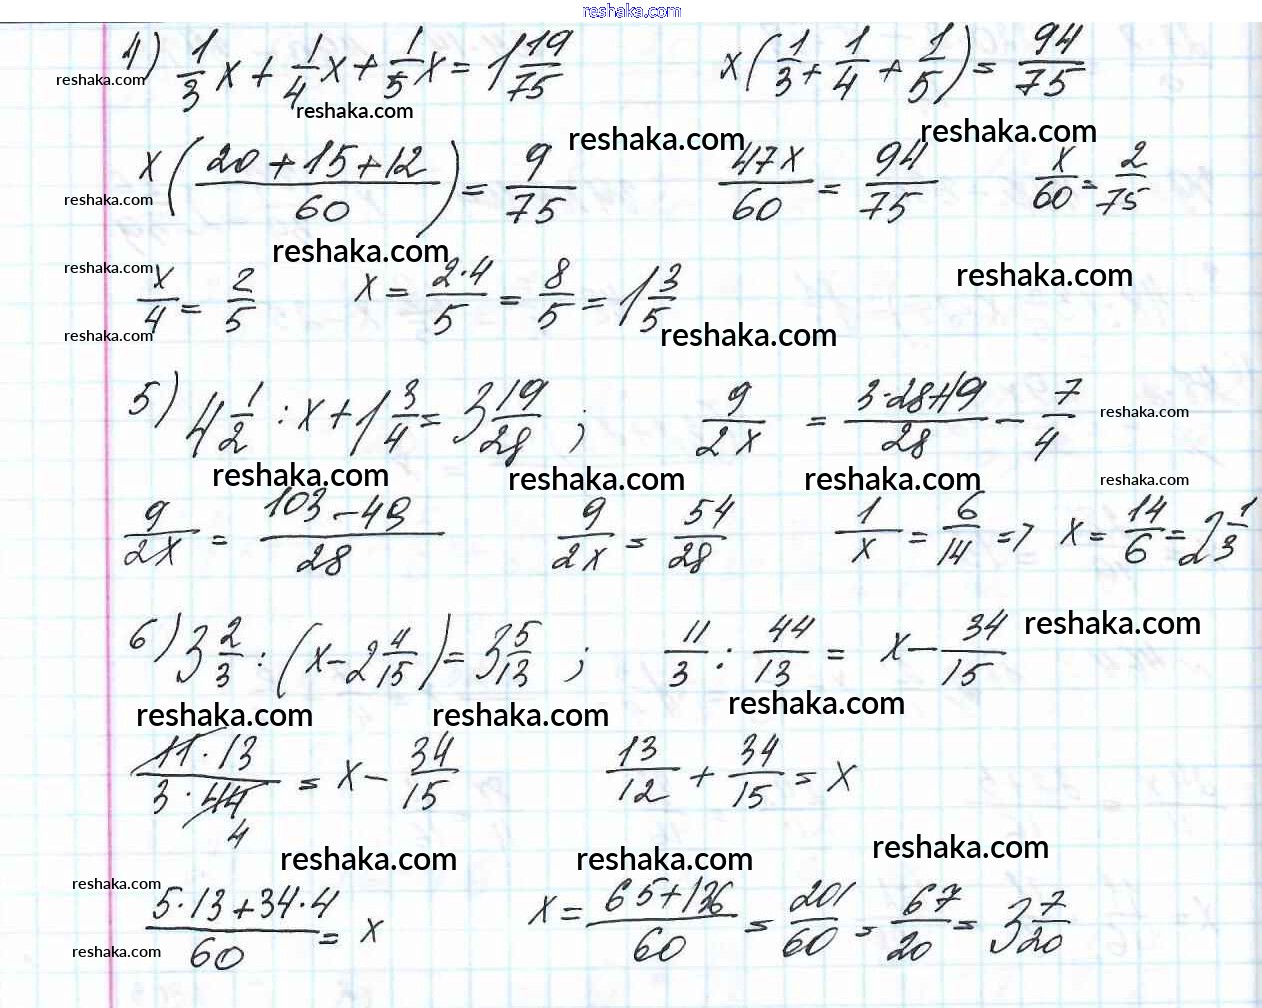 reshaka.com
4) 1/3 x + 1/4 x + 1/5 x = 1 19/75    x(1/3 + 1/4 + 1/5) = 94/75
reshaka.com
reshaka.com
reshaka.com reshaka.com
x((20+15+12)/60) = 9/75    47x/60 = 94/75    x/60 = 2/75
reshaka.com
reshaka.com
reshaka.com reshaka.com
x/4 = 2/5    x = (2·4)/5 = 8/5 = 1 3/5
reshaka.com reshaka.com
5) 4 1/2 : x + 1 3/4 = 3 19/28 ;    9/(2x) = (3·28+19)/28 − 7/4
reshaka.com
reshaka.com reshaka.com reshaka.com reshaka.com
9/(2x) = (103−49)/28    9/(2x) = 54/28    1/x = 6/14 => x = 14/6 = 2 1/3
6) 3 2/3 : (x − 2 4/15) = 3 5/13 ;    11/3 : 44/13 = x − 34/15
reshaka.com
reshaka.com reshaka.com reshaka.com
(11·13)/(3·44) = x − 34/15    13/12 + 34/15 = x
4
reshaka.com reshaka.com reshaka.com
reshaka.com
(5·13+34·4)/60 = x    x = (65+136)/60 = 201/60 = 67/20 = 3 7/20
reshaka.com